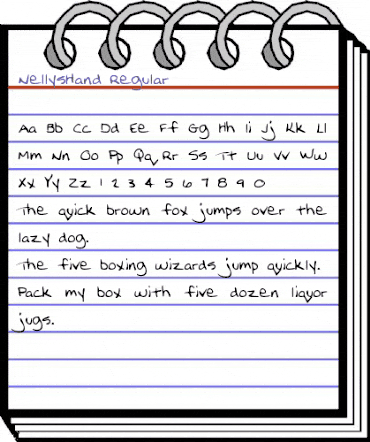 NellysHand Regular
Aa Bb Cc Dd Ee Ff Gg Hh Ii Jj Kk Ll
Mm Nn Oo Pp Qq Rr Ss Tt Uu Vv Ww
Xx Yy Zz 1 2 3 4 5 6 7 8 9 0
The quick brown fox jumps over the
lazy dog.
The five boxing wizards jump quickly.
Pack my box with five dozen liquor
jugs.